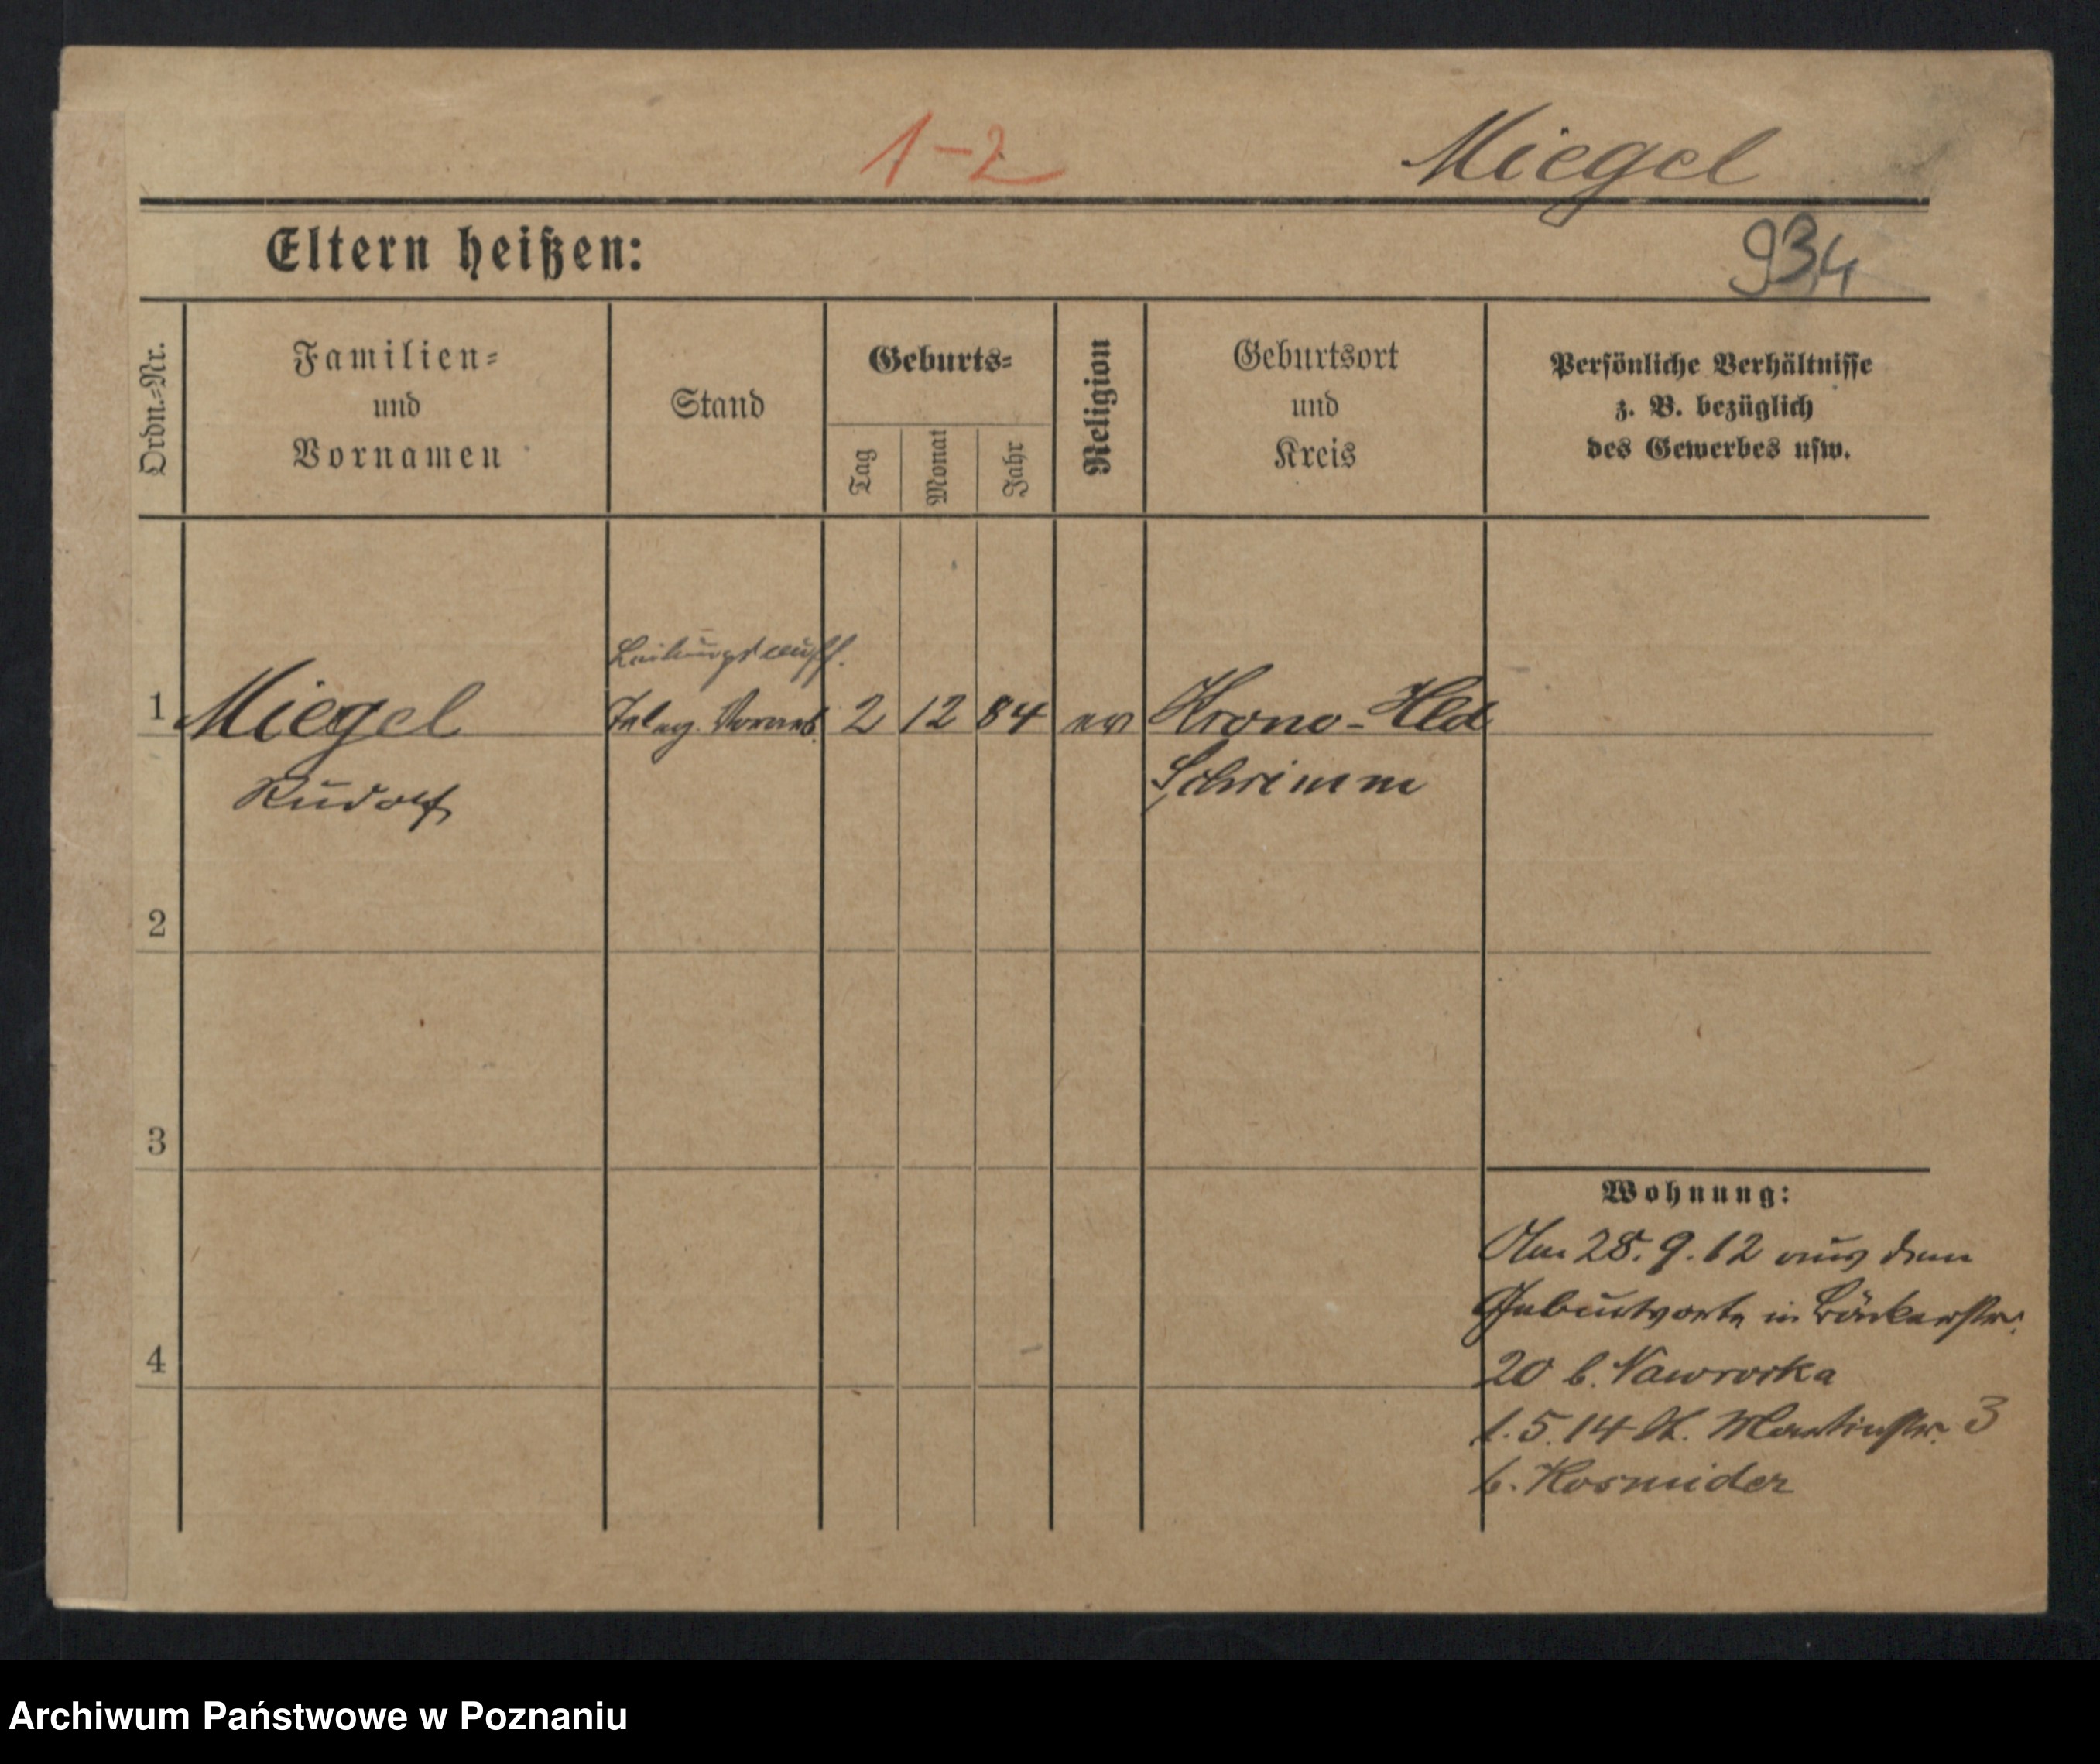 1-2 Miegel
Eltern heißen:
934
Ordn.=Nr.
Familien=
und
Vornamen
Stand
Geburts=
Tag
Monat
Jahr
Religion
Geburtsort
und
Kreis
Persönliche Verhältnisse
z. B. bezüglich
des Gewerbes usw.
Leitungsauff.
1 Miegel Teleg. Vorarb. 2 12 84 ev Krono-Hld
Rudolf Schrimm
2
3
4
Wohnung:
Am 28.9.12 aus dem
Geburtsorte in Bäckerstr.
20 b. Nawrocka
1.5.14 St. Martinstr. 3
b. Kosmider
Archiwum Państwowe w Poznaniu